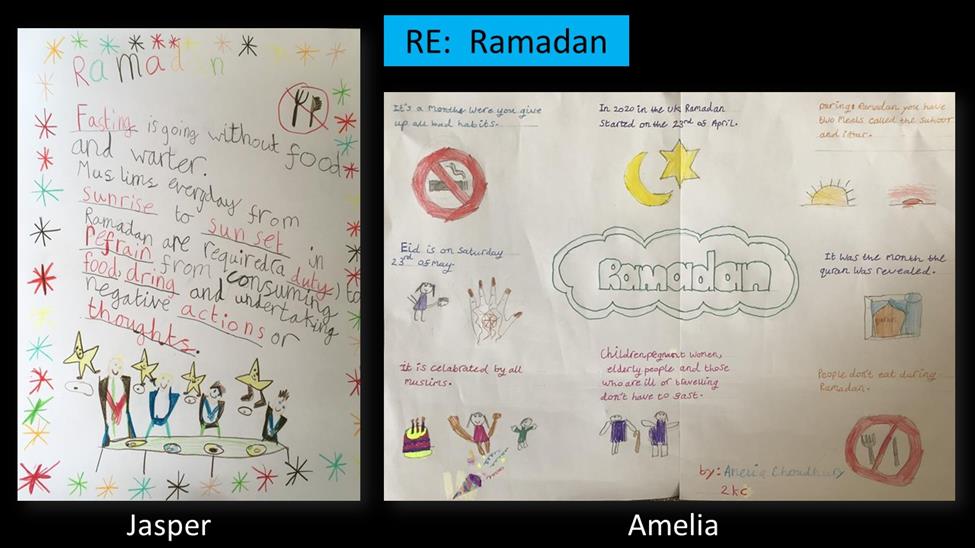 RE: Ramadan
Ramadan
Fasting is going without food
and warter.
Muslims everyday from
sunrise to sunset in
Ramadan are required (a duty) to
refrain from consuming
food, dring and undertaking
negative actions or
thoughts.
It's a months were you give
up all bad habits.
In 2020 in the UK Ramadan
started on the 23rd of April.
During Ramadan you have
two meels called the suhoor
and iftar.
Eid is on saturday
23rd of May
Ramadan
It was the month the
quran was revealed.
It is celebrated by all
muslims.
Children, pegnant women,
elderly people and those
who are ill or travelling
don't have to fast.
People don't eat during
Ramadan.
by: Choudhury
2kc
Jasper
Amelia